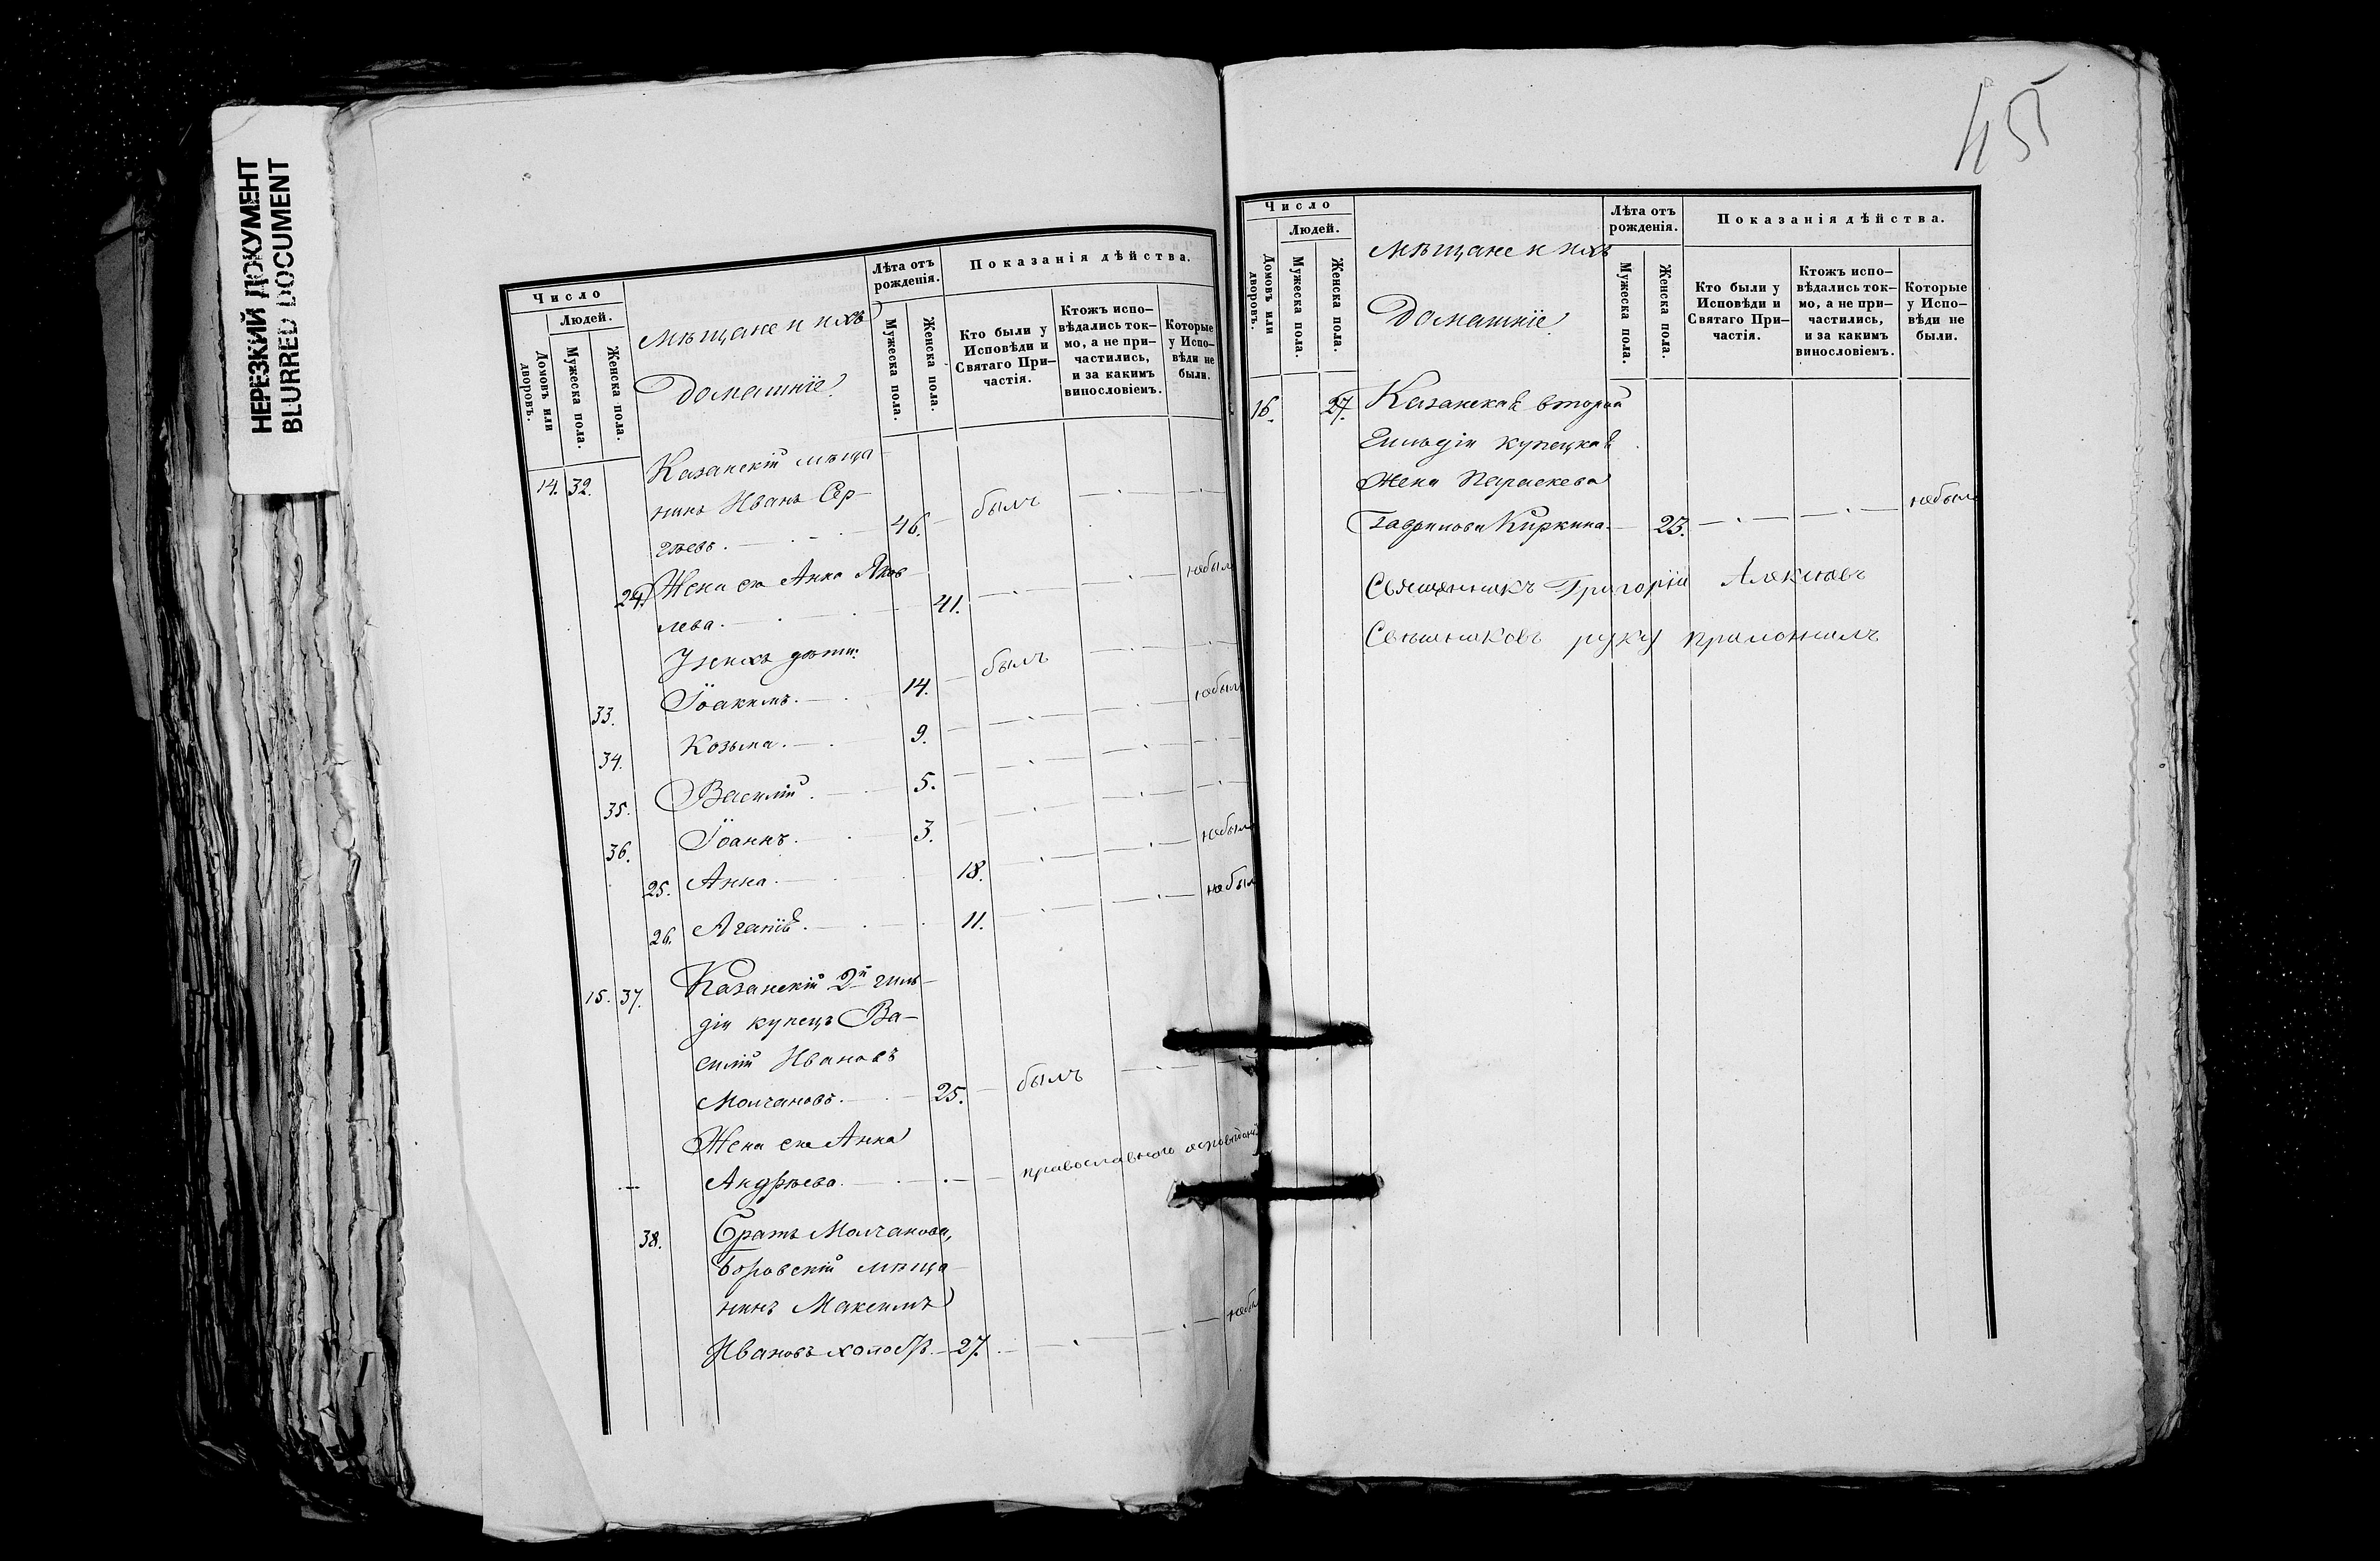 НЕРЕЗКИЙ ДОКУМЕНТ
BLURRED DOCUMENT
Число
Людей.
Домовъ или дворовъ.
Мужеска пола.
Женска пола.
Мѣщане и ихъ
Домашніе
Лѣта отъ рожденія.
Мужеска пола.
Женска пола.
Показанія дѣйства.
Кто были у Исповѣди и Святаго При-
частія.
Ктожъ испо-
вѣдались ток-
мо, а не при-
частились,
и за какимъ
винословіемъ.
Которые
у Испо-
вѣди не
были.
14. 32. Казанскій мѣща
нинъ Иванъ Сер-
гѣевъ. 46. былъ
24. Жена его Анна Яков
лева. 41. небыл
У нихъ дѣти:
33. Іоакимъ. 14. былъ
34. Козьма. 9. небыл
35. Василій. 5.
36. Іоаннъ. 3.
25. Анна. 18. небыл
26. Агапія. 11. небыл
15. 37. Казанскій 2й гиль-
діи купецъ Ва-
силій Ивановъ
Молчановъ. 25. былъ
Жена его Анна
Андрѣева. православного
38. Братъ Молчанова,
Боровскій мѣща
нинъ Максимъ
Ивановъ холос. 27. небыл
45
Число
Людей.
Домовъ или дворовъ.
Мужеска пола.
Женска пола.
Мѣщане и ихъ
Домашніе
Лѣта отъ
рожденія.
Мужеска пола.
Женска пола.
Показанія дѣйства.
Кто были у
Исповѣди и
Святаго При-
частія.
Ктожъ испо-
вѣдались ток-
мо, а не при-
частились,
и за какимъ
винословіемъ.
Которые
у Испо-
вѣди не
были.
16. 27. Казанская второй
Гильдіи купецкая
Жена Параскева
Киркина. 23. небыл
Священникъ Григорій Алексѣевъ
руку приложилъ